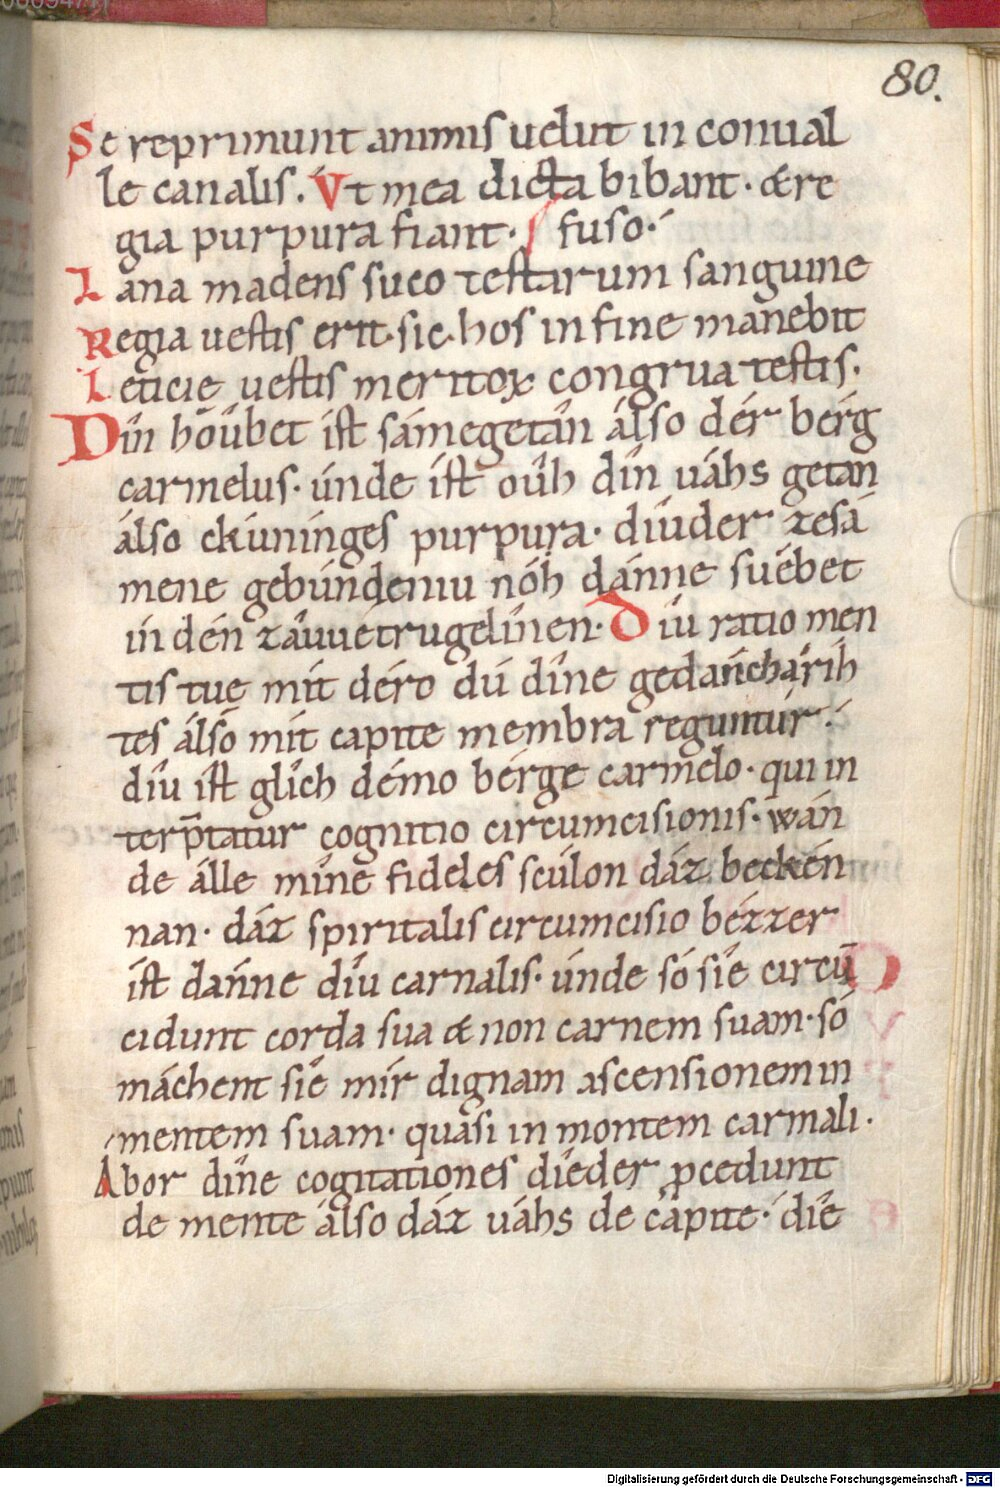 80.
Se reprimunt animis uelut in conual
le canalis. Vt mea dicta bibant · & re
gia purpura fiant · / fuso ·
Lana madens suco testarum sanguine
Regia uestis erit · sic · hos in fine manebit
Leticię uestis meritoꝝ congrua testis ·
Dín hoûbet ist sámegetân álso dér bérg
carmelus · únde ist oûh dín uáhs getan
álso ckúninges purpura · díuder zesá
mene gebúndeniu nóh dánne suébet
in dén záuuetrugelînen · Díu ratio men
tis tuę mit déro dú dîne gedáncha ríh
tes álsó mit capite membra reguntur ·
díu ist glích démo bérge carmelo · qui in
terp̄tatur cognitio circumcisionis · wán
de álle mîne fideles scúlon dáz beckén
nan · dáz spiritalis circumcisio bézzer
ist dánne díu carnalis · únde só síe circū
cidunt corda sua & non carnem suam · só
máchent síe mír dignam ascensionem in
mentem suam · quasi in montem carmali ·
Abor dîne cogitationes díeder ꝓcedunt
de mente álso dáz uáhs de capite · díe
Digitalisierung gefördert durch die Deutsche Forschungsgemeinschaft - DFG